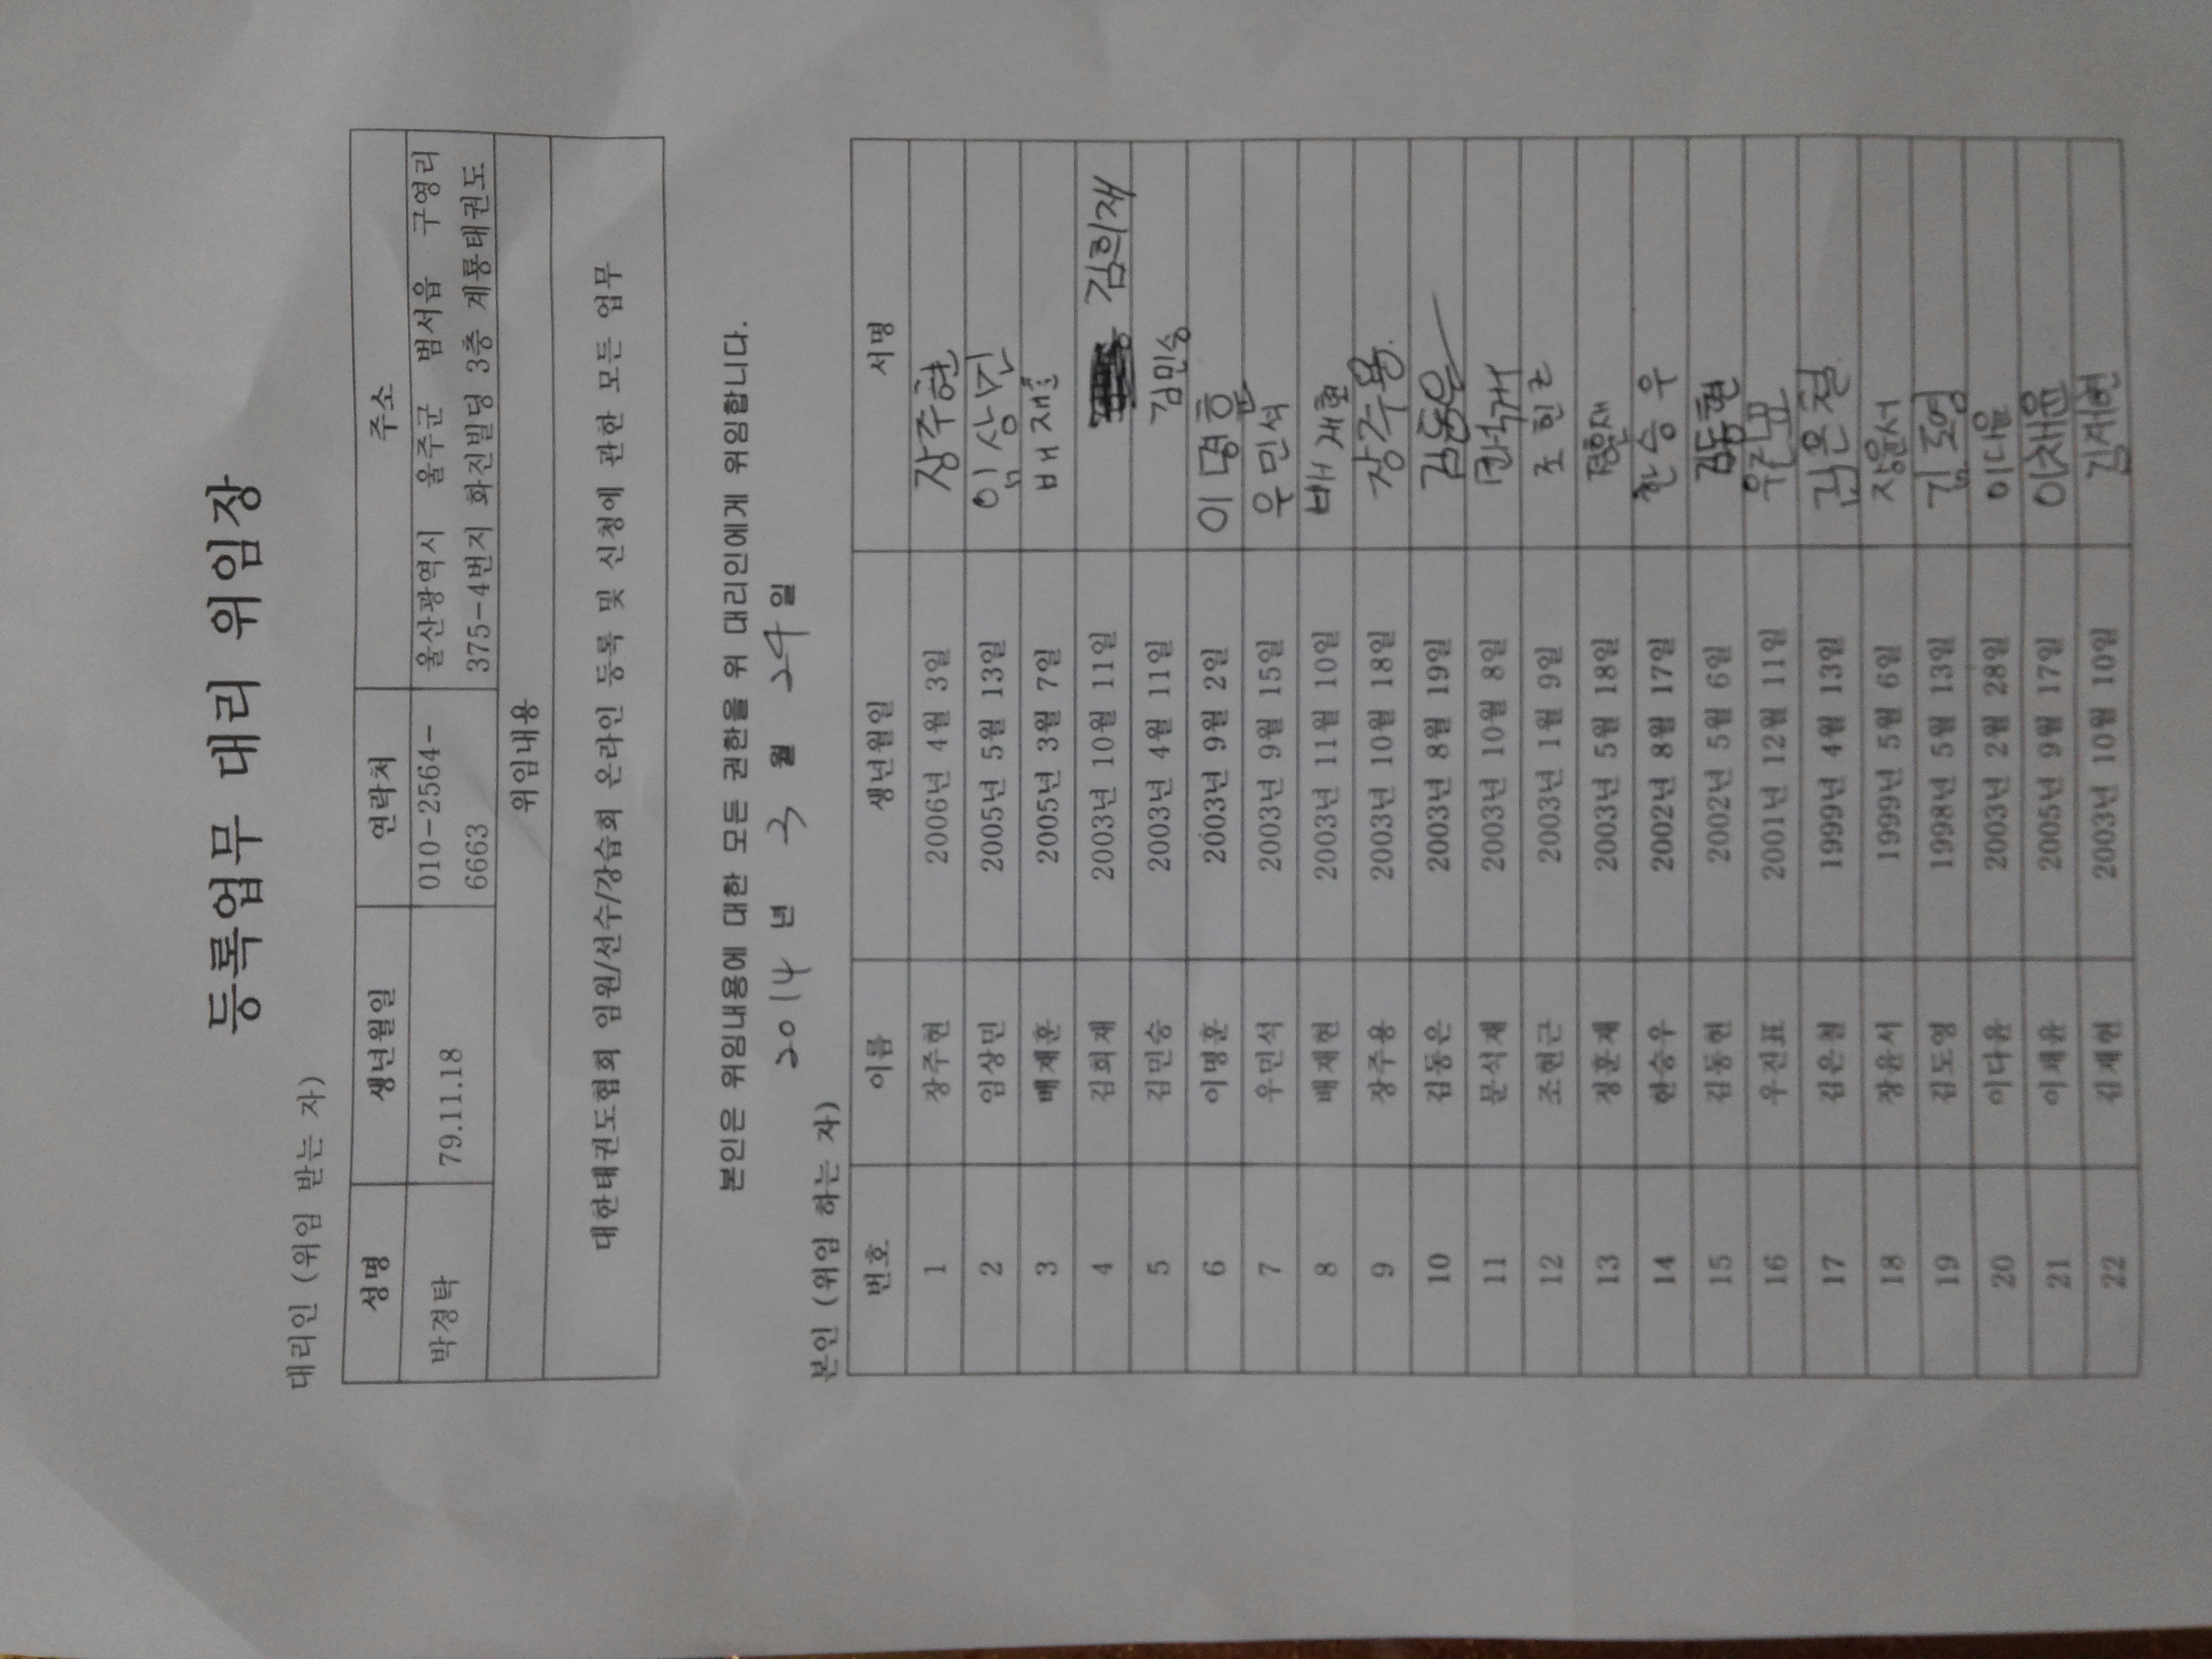 등록업무 대리 위임장
대리인 (위임 받는 자)
성명 생년월일 연락처 주소
박경탁 79.11.18 010-2564-6663 울산광역시 울주군 범서읍 구영리 375-4번지 화진빌딩 3층 계룡태권도
위임내용
대한태권도협회 임원/선수/강습회 온라인 등록 및 신청에 관한 모든 업무
본인은 위임내용에 대한 모든 권한을 위 대리인에게 위임합니다.
2014 년 3 월 24일
본인 (위임 하는 자)
번호 이름 생년월일 서명
1 장주현 2006년 4월 3일 장주현
2 임상민 2005년 5월 13일 임상민
3 배재훈 2005년 3월 7일 배재훈
4 김희재 2003년 10월 11일 김희재
5 김민승 2003년 4월 11일 김민승
6 이명훈 2003년 9월 2일 이명훈
7 우민석 2003년 9월 15일 우민석
8 배재현 2003년 11월 10일 배재현
9 장주용 2003년 10월 18일 장주용
10 김동은 2003년 8월 19일 김동은
11 문석재 2003년 10월 8일 문석재
12 조현근 2003년 1월 9일 조현근
13 정훈재 2003년 5월 18일 정훈재
14 한승우 2002년 8월 17일 한승우
15 김동현 2002년 5월 6일 김동현
16 우진표 2001년 12월 11일 우진표
17 김은철 1999년 4월 13일 김은철
18 장윤서 1999년 5월 6일 장윤서
19 김도영 1998년 5월 13일 김도영
20 이다윤 2003년 2월 28일 이다윤
21 이채윤 2005년 9월 17일 이채윤
22 김재현 2003년 10월 10일 김재현